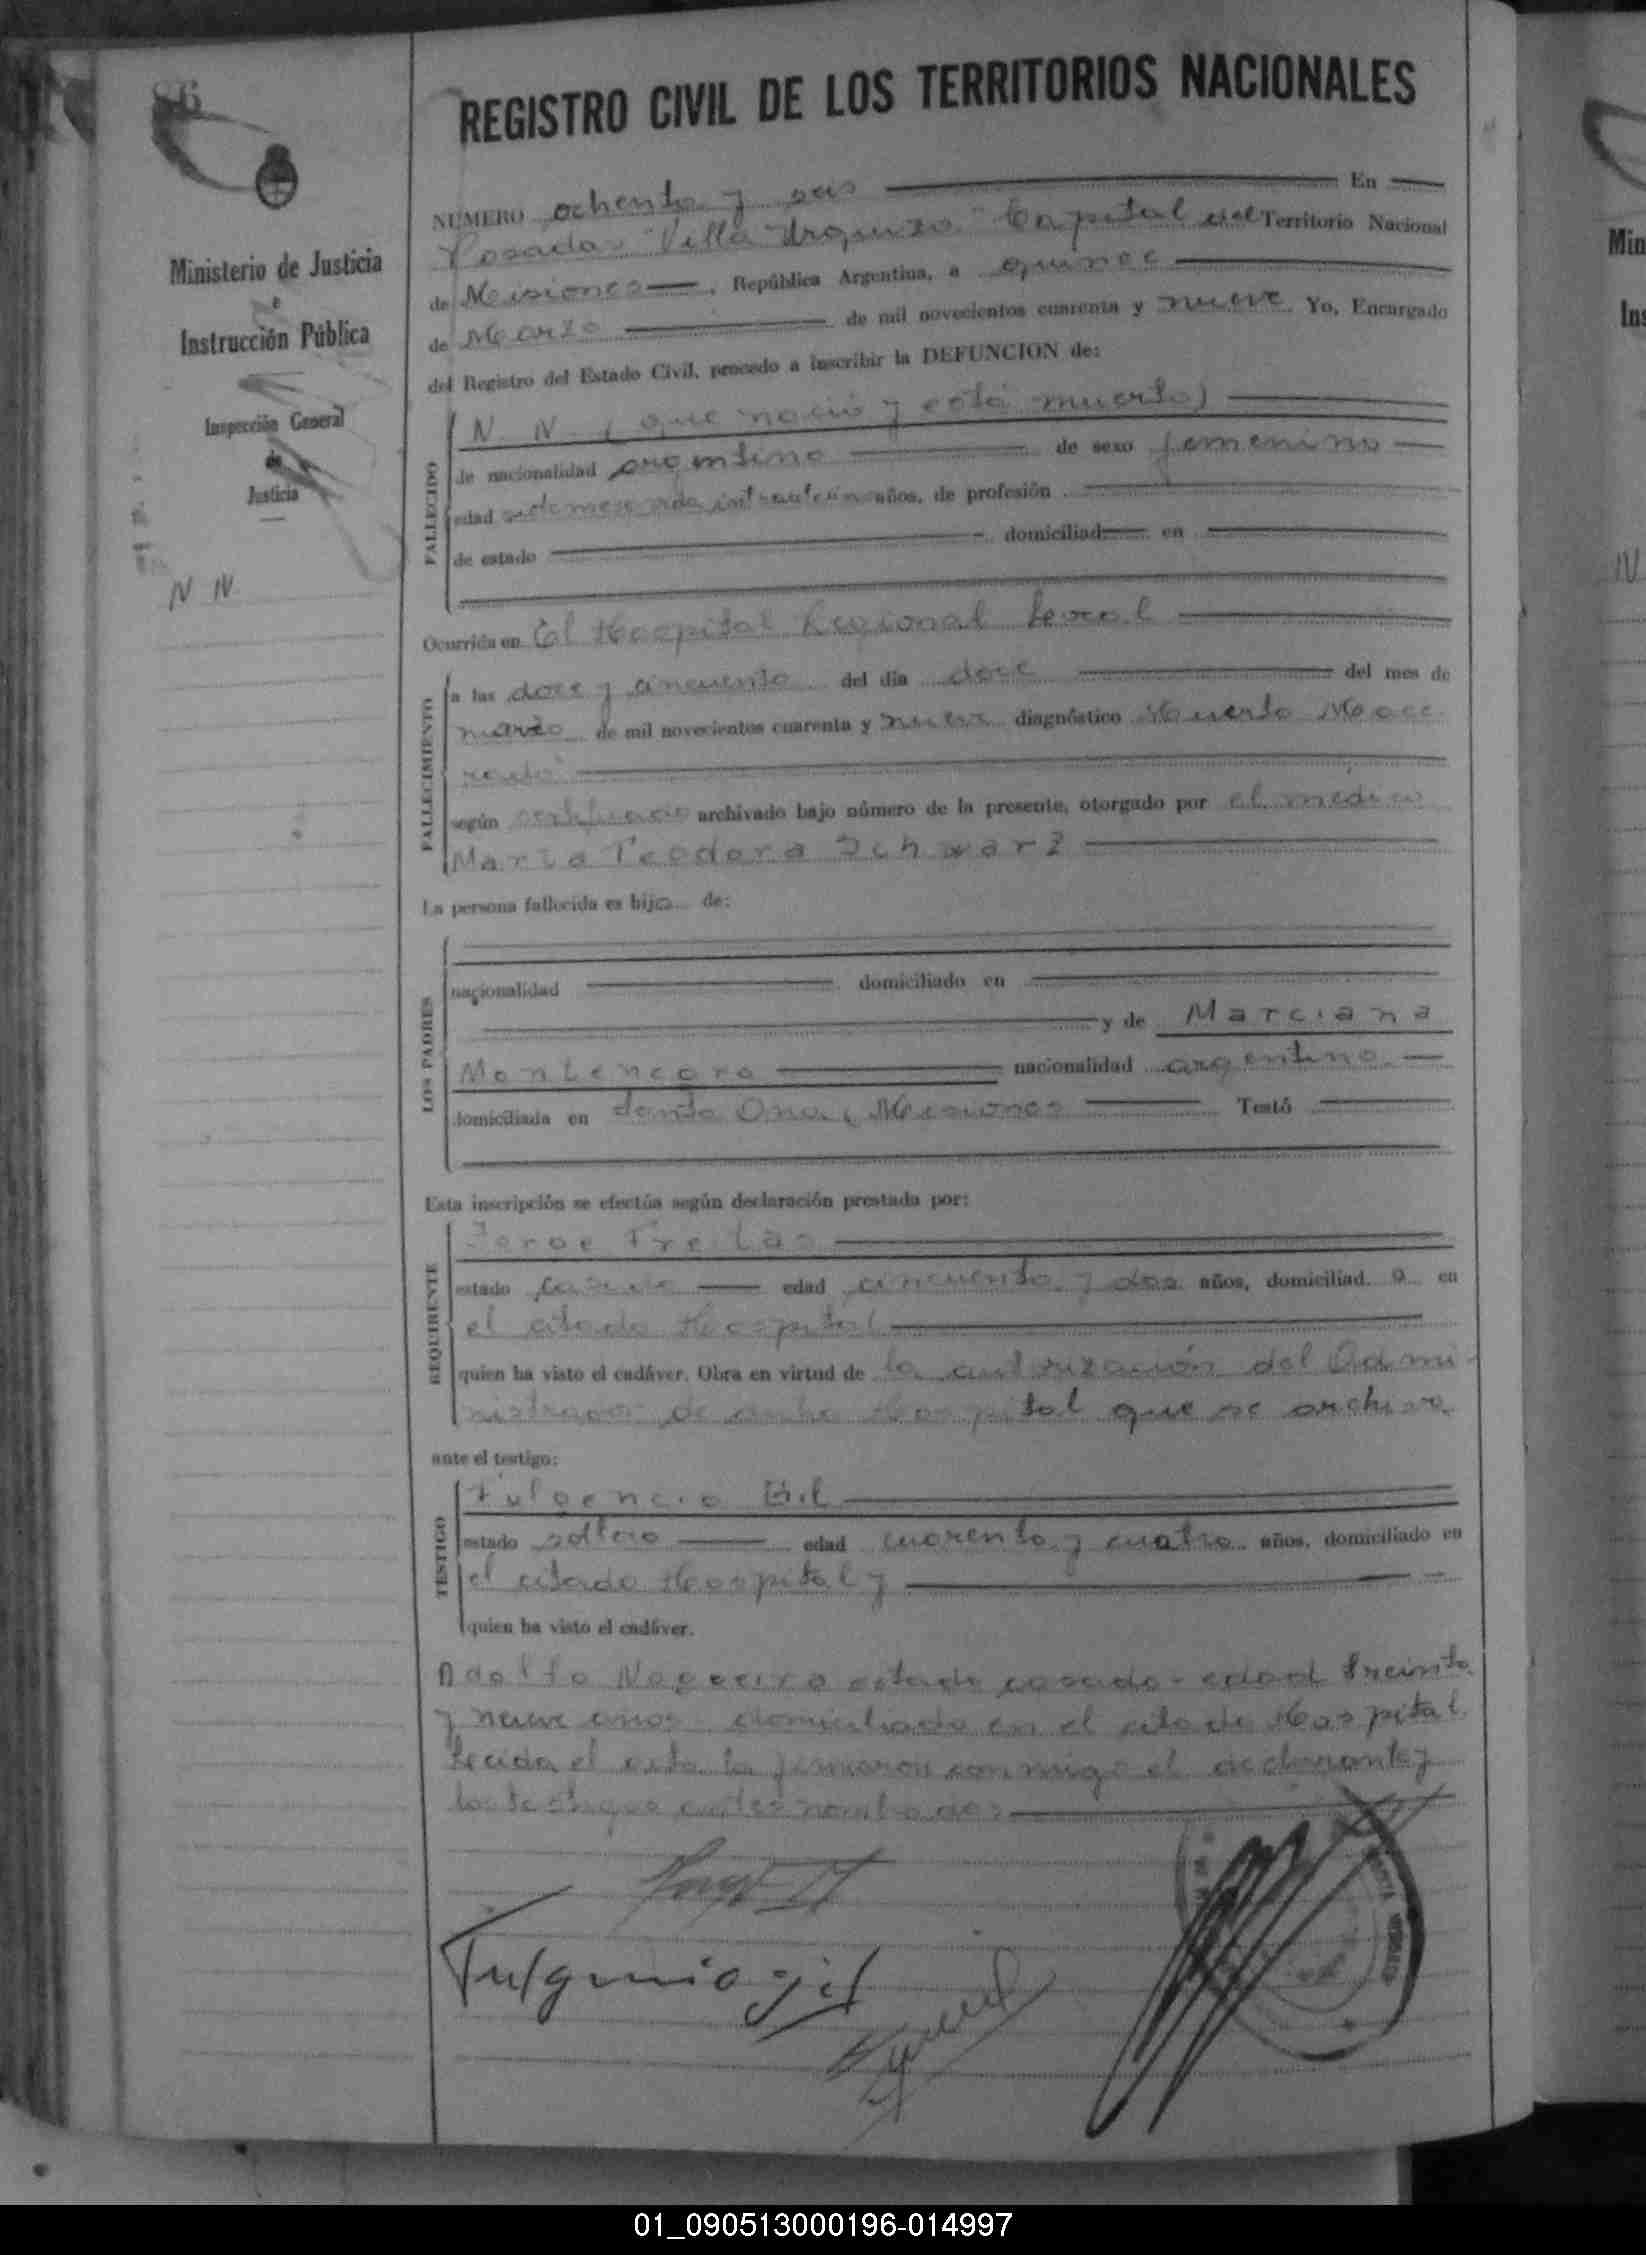 86
REGISTRO CIVIL DE LOS TERRITORIOS NACIONALES
Ministerio de Justicia
e
Instrucción Pública
Inspección General
de
Justicia
N N
NUMERO ochenta y seis En
Posadas "Villa Urquiza" Capital del Territorio Nacional
de Misiones, República Argentina, a quince
de Marzo de mil novecientos cuarenta y nueve Yo, Encargado
del Registro del Estado Civil, procedo a inscribir la DEFUNCION de:
FALLECIDO
N. N. (que nació y está muerto)
de nacionalidad argentina de sexo femenino
edad años, de profesión
de estado domiciliad en
Ocurrida en El Hospital Regional Local
FALLECIMIENTO
a las doce y cincuenta del día doce del mes de
marzo de mil novecientos cuarenta y nueve diagnóstico Muerto Mace
rado
según certificado archivado bajo número de la presente, otorgado por el médico
Maria Teodora Schwarz
La persona fallecida es hija de:
LOS PADRES
nacionalidad domiciliado en
y de Marciana
Montenegro nacionalidad argentina
domiciliada en Santa Ana, Misiones Testó
Esta inscripción se efectúa según declaración prestada por:
REQUIRENTE
Jorge Freitas
estado casado edad cincuenta y dos años, domiciliad o en
el citado Hospital
quien ha visto el cadáver. Obra en virtud de la autorización del Admi-
nistrador de dicho Hospital que se archiva
ante el testigo:
TESTIGO
Fulgencio Gil
estado soltero edad cuarenta y cuatro años, domiciliado en
el citado Hospital y
quien ha visto el cadáver.
Adolfo Nogueira estado casado - edad treinta
y nueve años domiciliado en el citado Hospital
Leida el acta la firmaron conmigo el declarante y
los testigos antes nombrados
Fulgencio gil
01_090513000196-014997